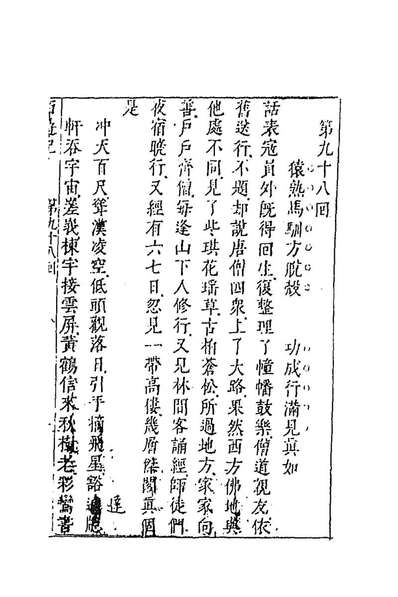 第九十八回
猿熟馬馴方脫殼　功成行滿見真如
話表寇員外既得回生復整理了幢幡鼓樂僧道親友依
舊送行不題却說唐僧四衆上了大路果然西方佛地與
他處不同見了些琪花瑶草古柏蒼松所過地方家家向
善戶戶齊僧每逢山下人修行又見林間客誦經師徒們
夜宿曉行又經有六七日忽見一帶高樓幾層傑閣真個
是
冲天百尺聳漢凌空低頭觀落日引手摘飛星豁達
軒吞宇宙嵯峩棟宇接雲屏黃鶴信來秋樹老彩鸞書
西遊記　第九十八回